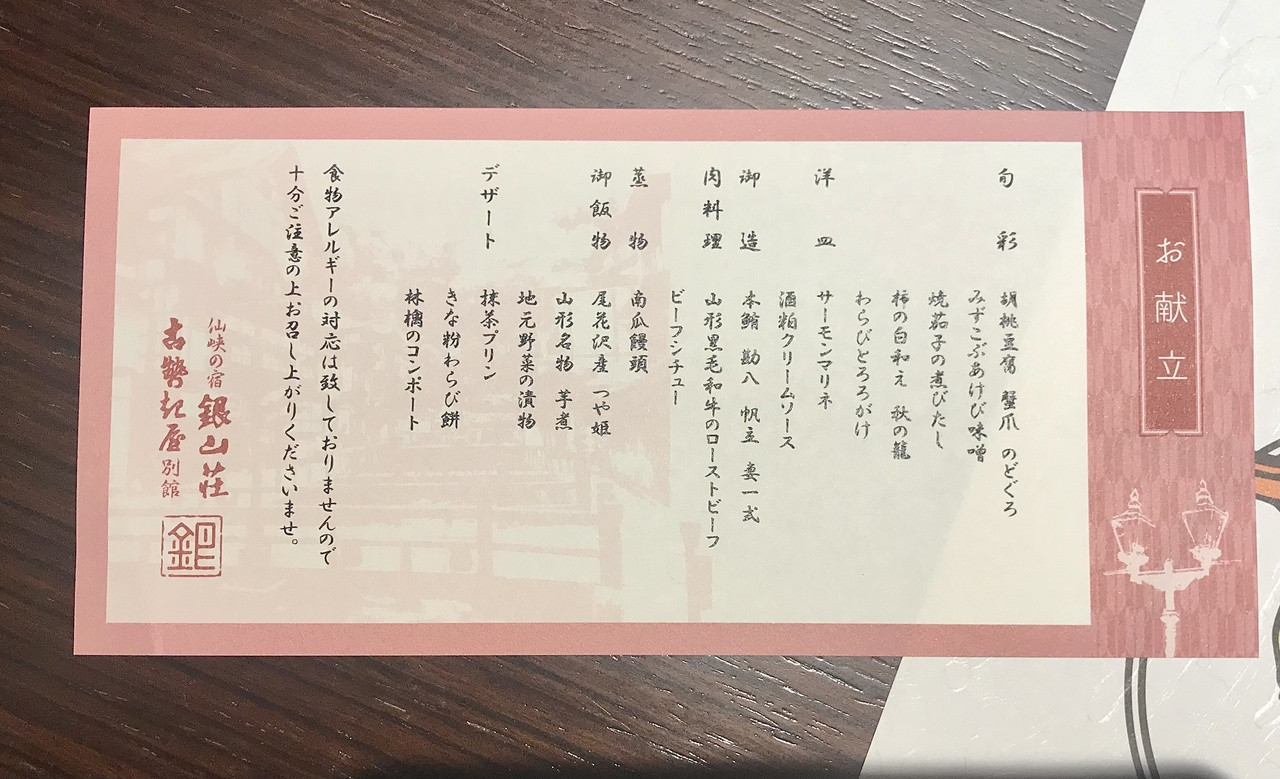 お献立
旬彩 胡桃豆腐 蟹爪 のどぐろ
みずこぶあけび味噌
焼茄子の煮びたし
柿の白和え 秋の籠
わらびとろろがけ
洋皿 サーモンマリネ
酒粕クリームソース
御造 本鮪 勘八 帆立 妻一式
肉料理 山形黒毛和牛のローストビーフ
ビーフシチュー
蒸物 南瓜饅頭
御飯物 尾花沢産 つや姫
山形名物 芋煮
地元野菜の漬物
デザート 抹茶プリン
きな粉わらび餅
林檎のコンポート
食物アレルギーの対応は致しておりませんので
十分ご注意の上お召し上がりくださいませ。
仙峡の宿 銀山荘
古勢起屋 別館